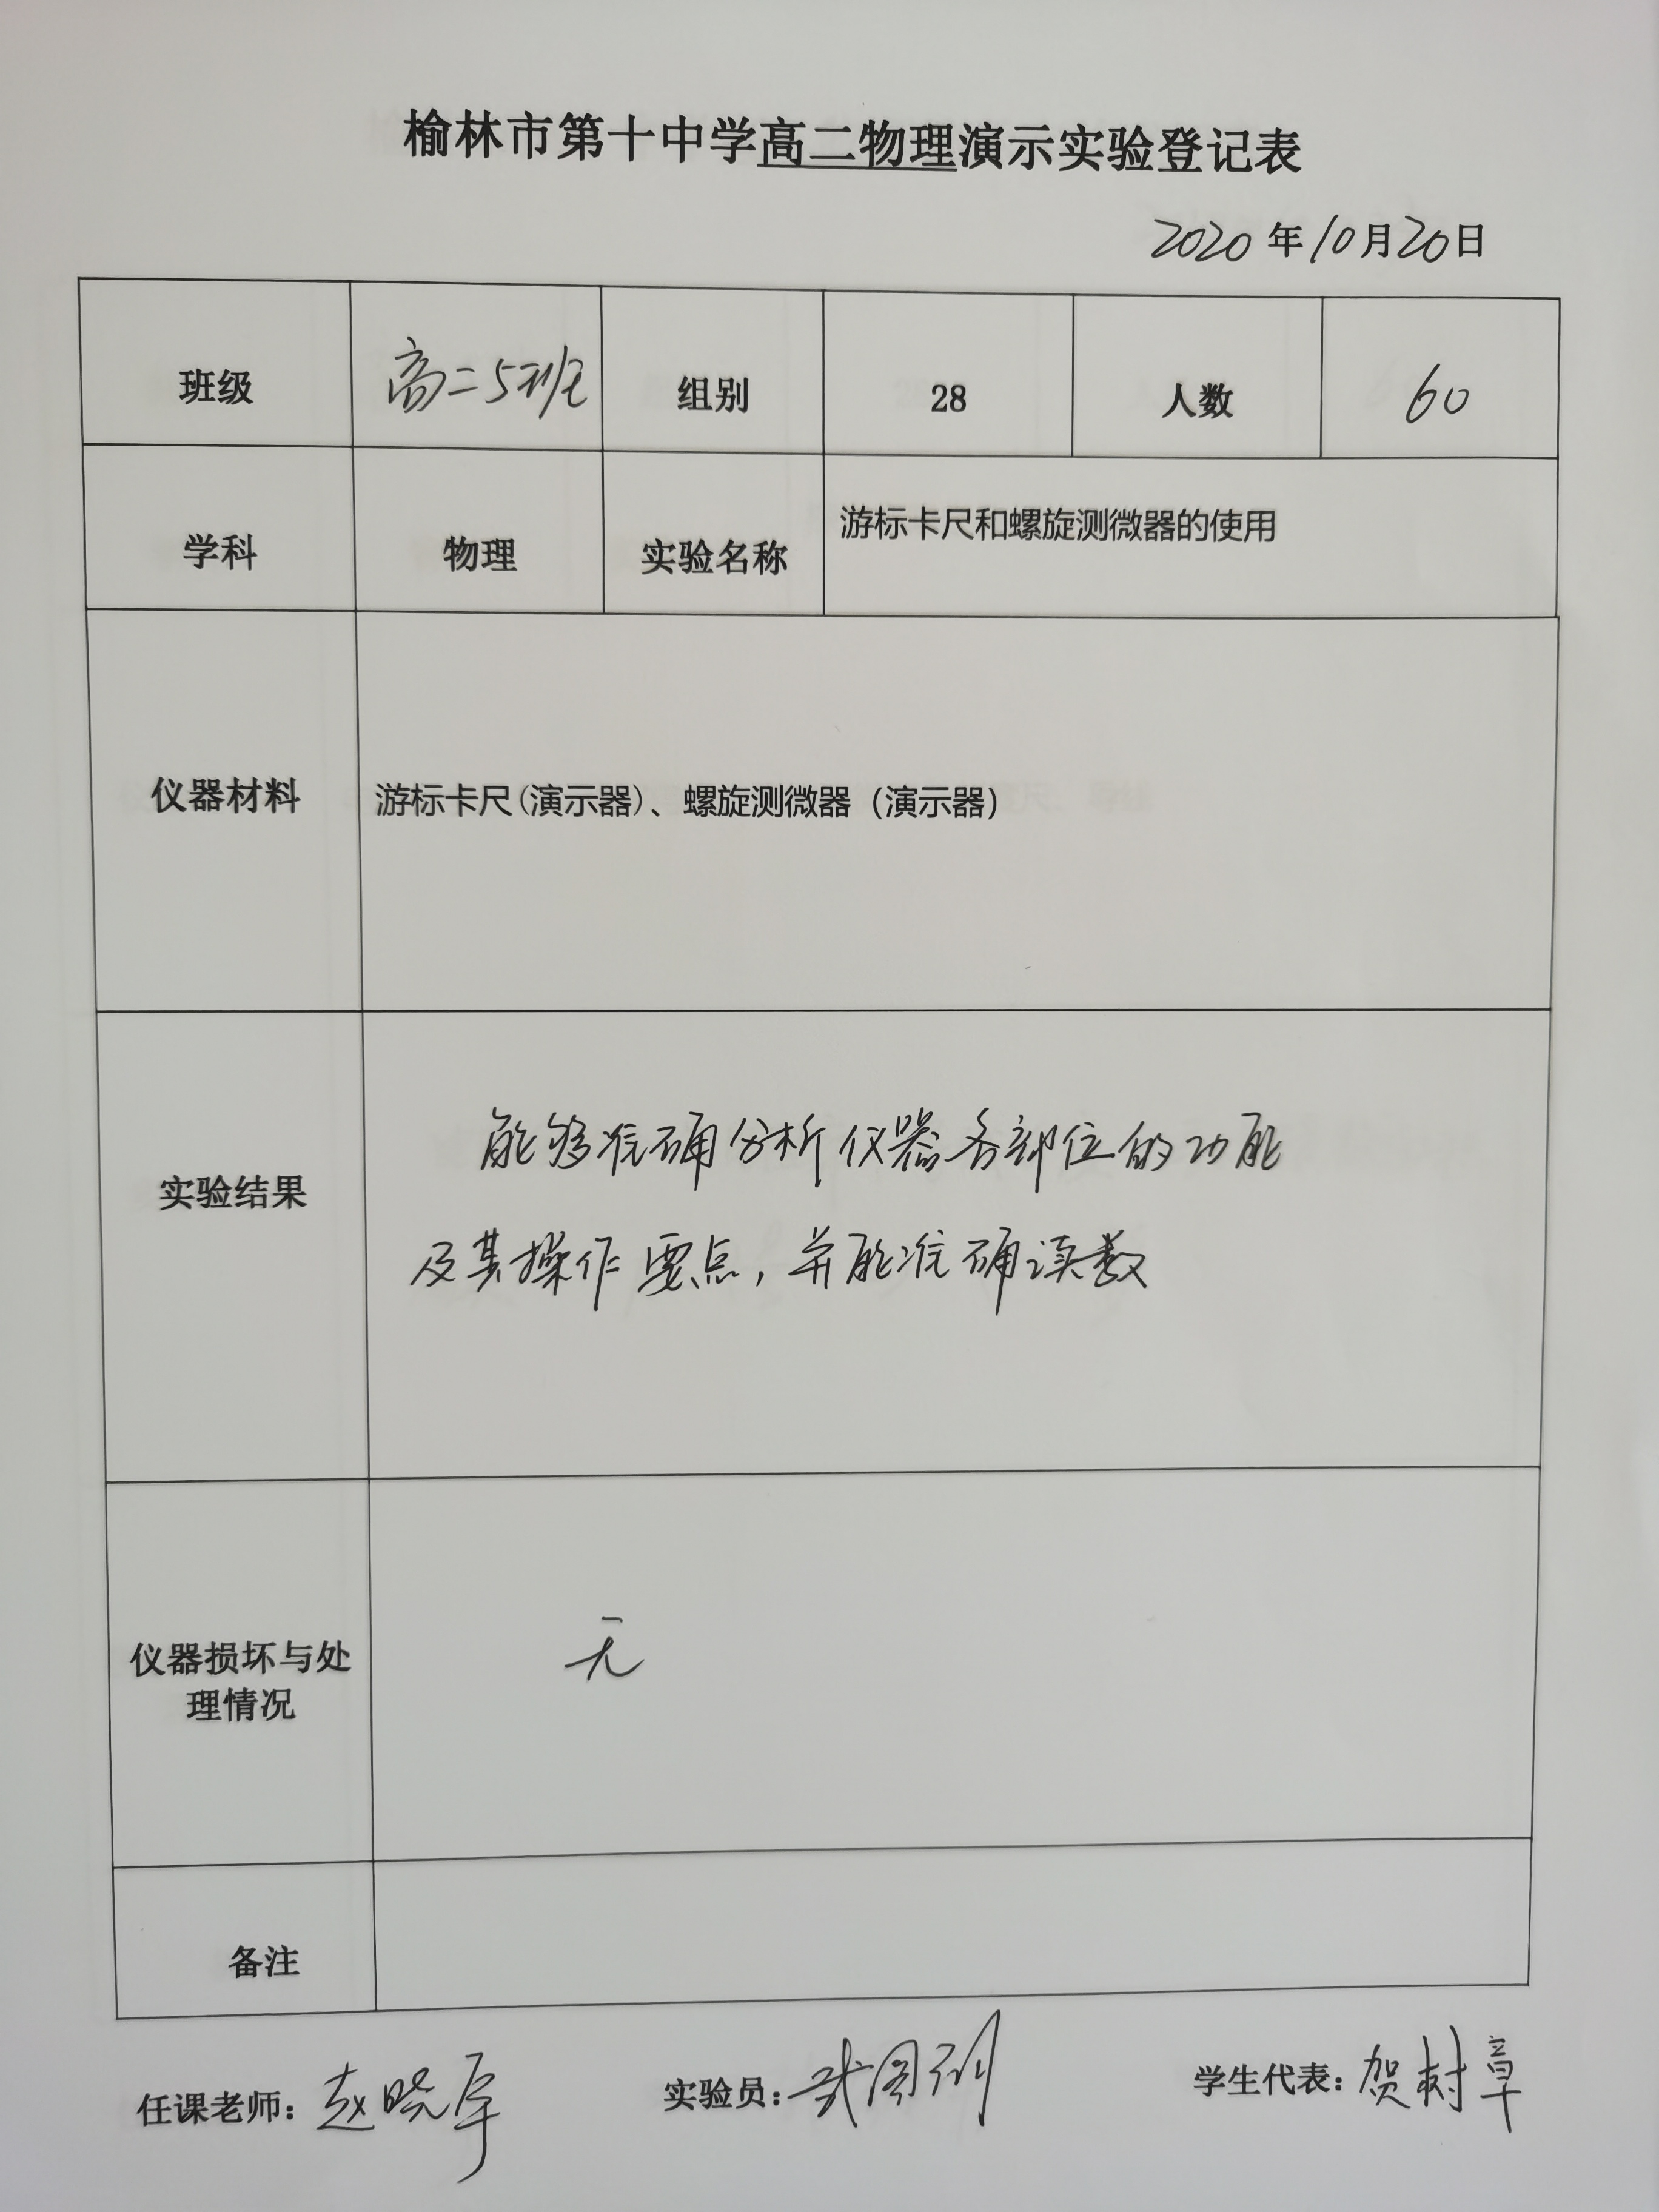 榆林市第十中学高二物理演示实验登记表
2020年10月20日
班级 高二5班 组别 28 人数 60
学科 物理 实验名称 游标卡尺和螺旋测微器的使用
仪器材料 游标卡尺(演示器)、螺旋测微器（演示器）
能够准确分析仪器各部位的功能
实验结果
及其操作要点，并能准确读数
仪器损坏与处
理情况
无
备注
任课老师：赵晓军 实验员： 学生代表：贺树章